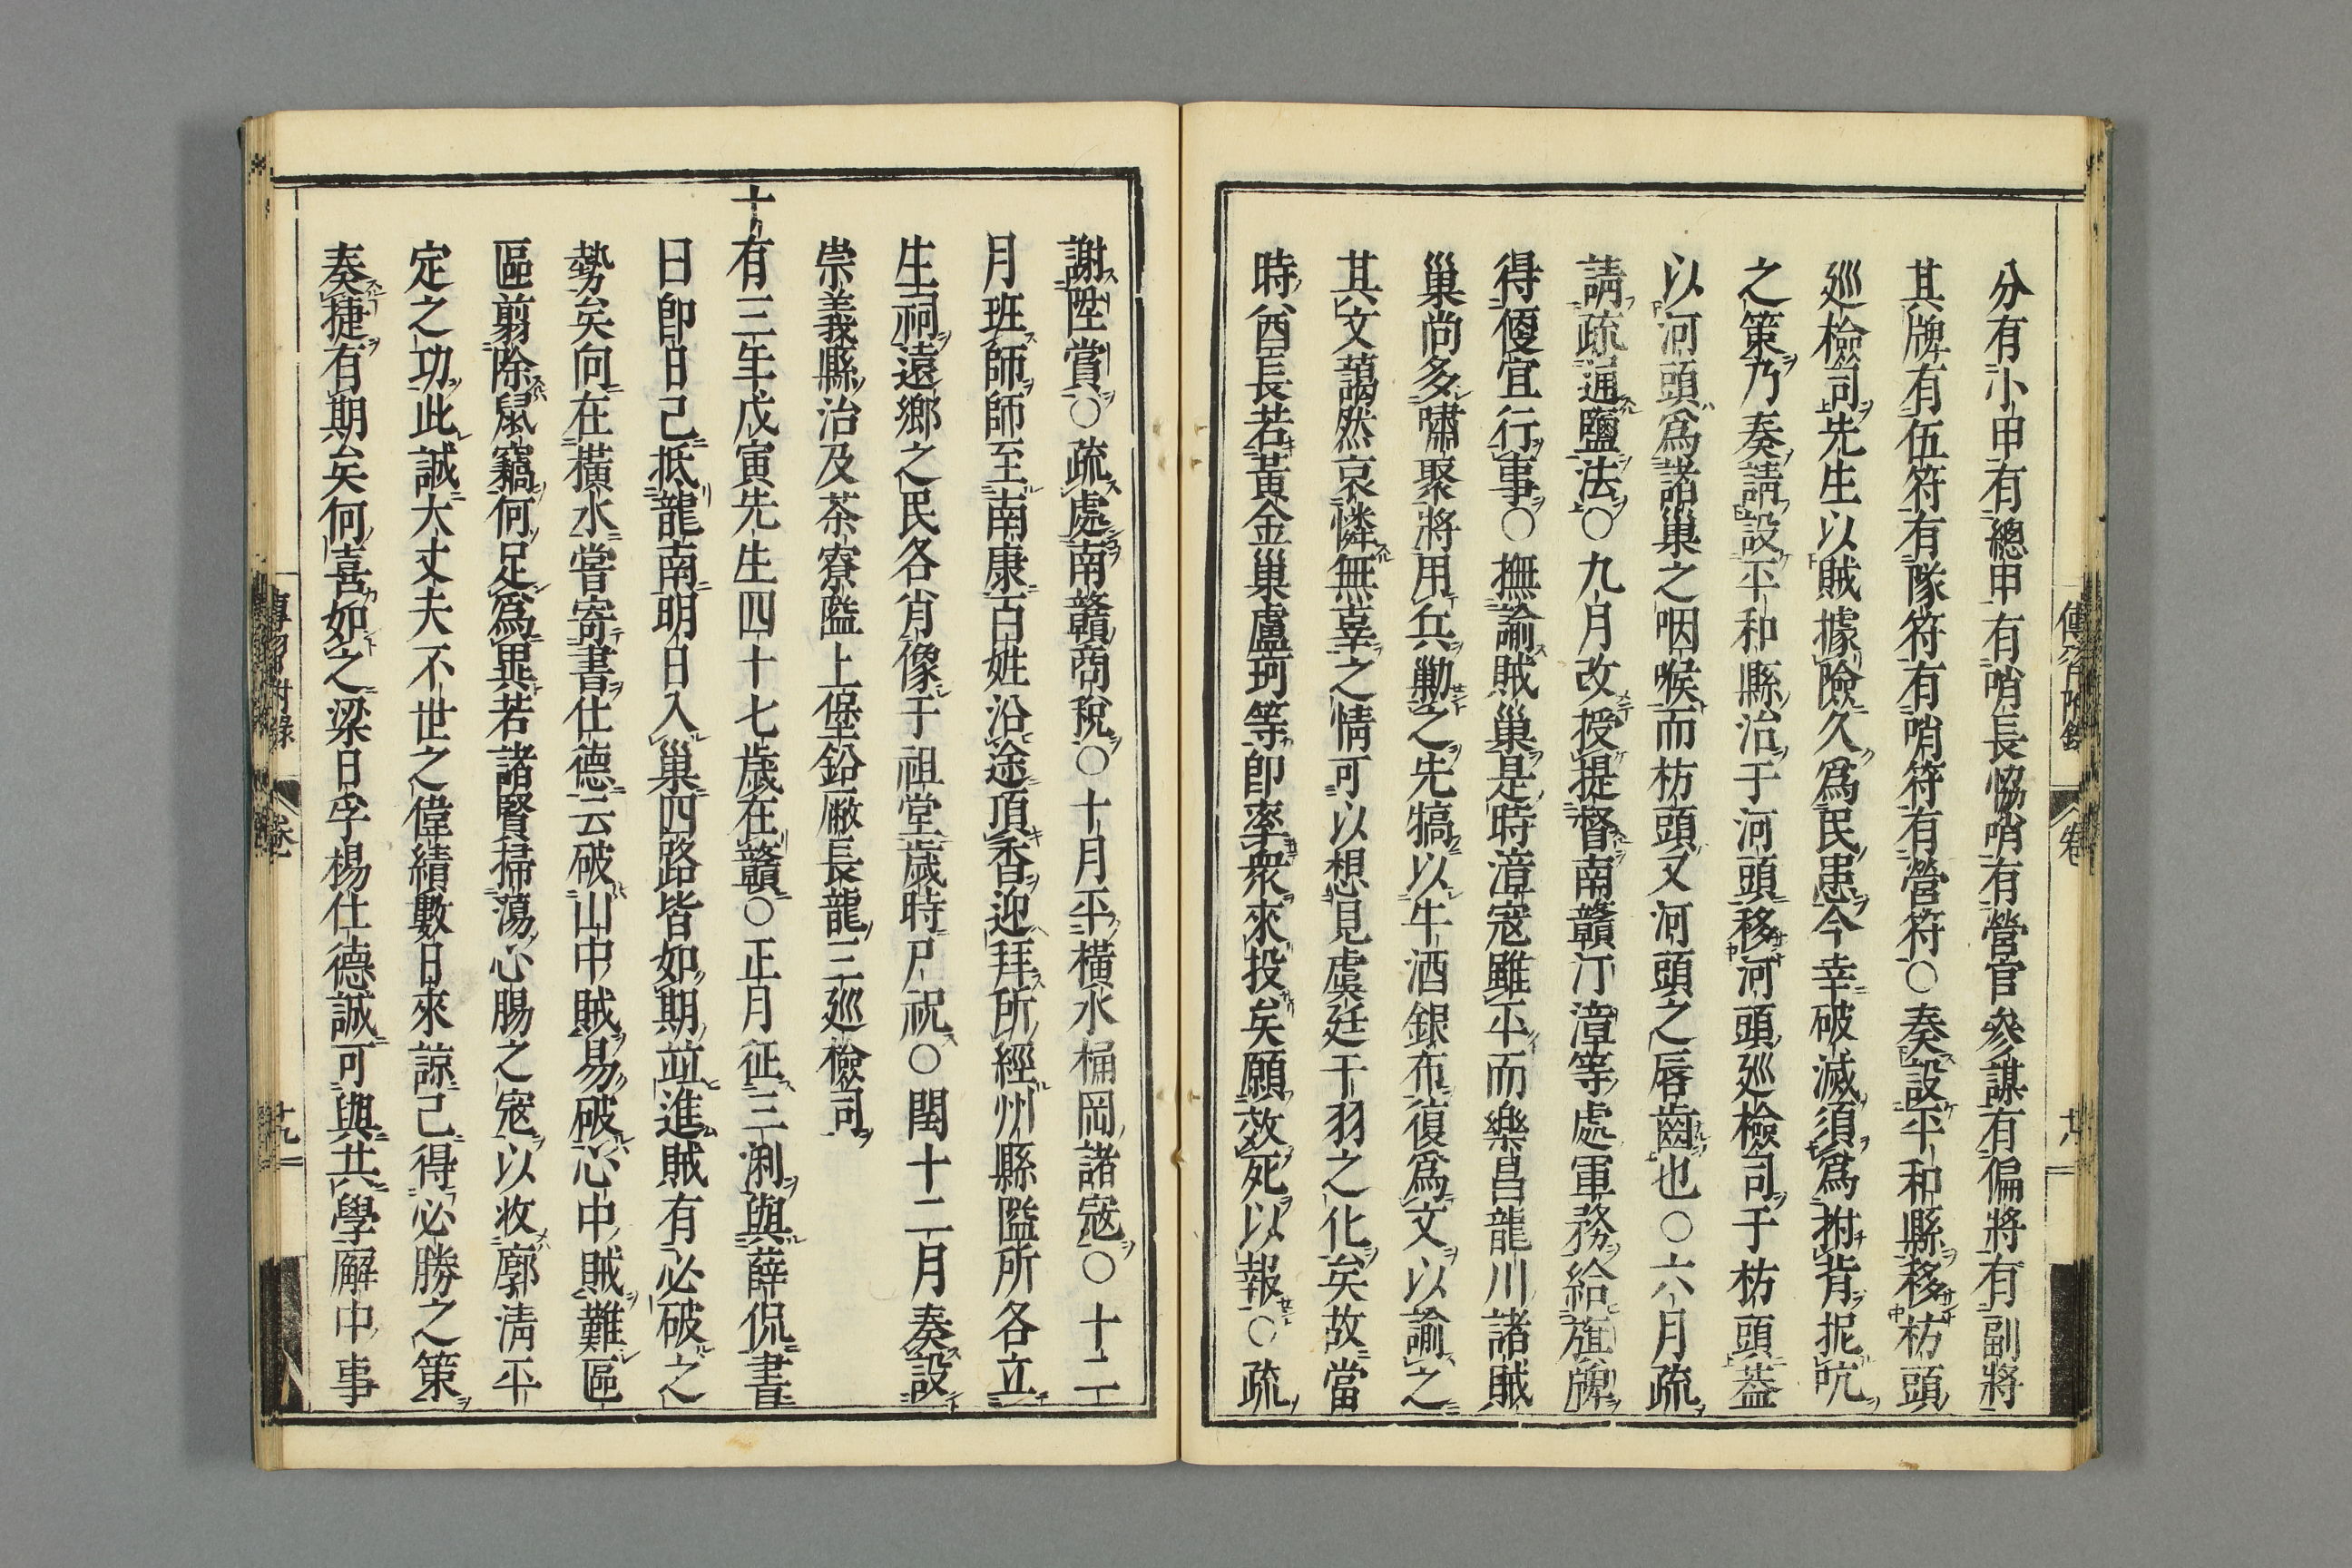 分有小甲有總甲有哨長協哨有營官參謀有偏將有副將
其牌有伍符有隊符有哨符有營符○奏設平和縣移枋頭
巡檢司先生以賊據險久爲民患今幸破滅須爲拊背扼吭
之策乃奏請設平和縣治于河頭移河頭巡檢司于枋頭蓋
以河頭爲諸巢之咽喉而枋頭又河頭之唇齒也○六月疏
請疏通鹽法○九月改授提督南贛汀漳等處軍務給旗牌
得便宜行事○撫諭賊巢是時漳寇雖平而樂昌龍川諸賊
巢尚多嘯聚將用兵勦之先犒以牛酒銀布復爲文以諭之
其文藹然哀憐無辜之情可以想見虞廷干羽之化矣故當
時酋長若黃金巢盧珂等卽率衆來投矣願效死以報○疏
謝陞賞○疏處南贛商稅○十月平橫水桶岡諸寇○十二
月班師師至南康百姓沿途頂香迎拜所經州縣隘所各立
生祠遠鄉之民各肖像于祖堂歲時尸祝○閏十二月奏設
崇義縣治及茶寮隘上堡鉛廠長龍三巡檢司
十有三年戊寅先生四十七歲在贛○正月征三浰與薛侃書
曰卽日已抵龍南明日入巢四路皆如期並進賊有必破之
勢矣向在橫水嘗寄書仕德云破山中賊易破心中賊難區
區剪除鼠竊何足爲異若諸賢掃蕩心腸之寇以收廓清平
定之功此誠大丈夫不世之偉績數日來諒已得必勝之策
奏捷有期矣何喜如之梁日孚楊仕德誠可與共學廨中事
傳習附錄 卷一 十九